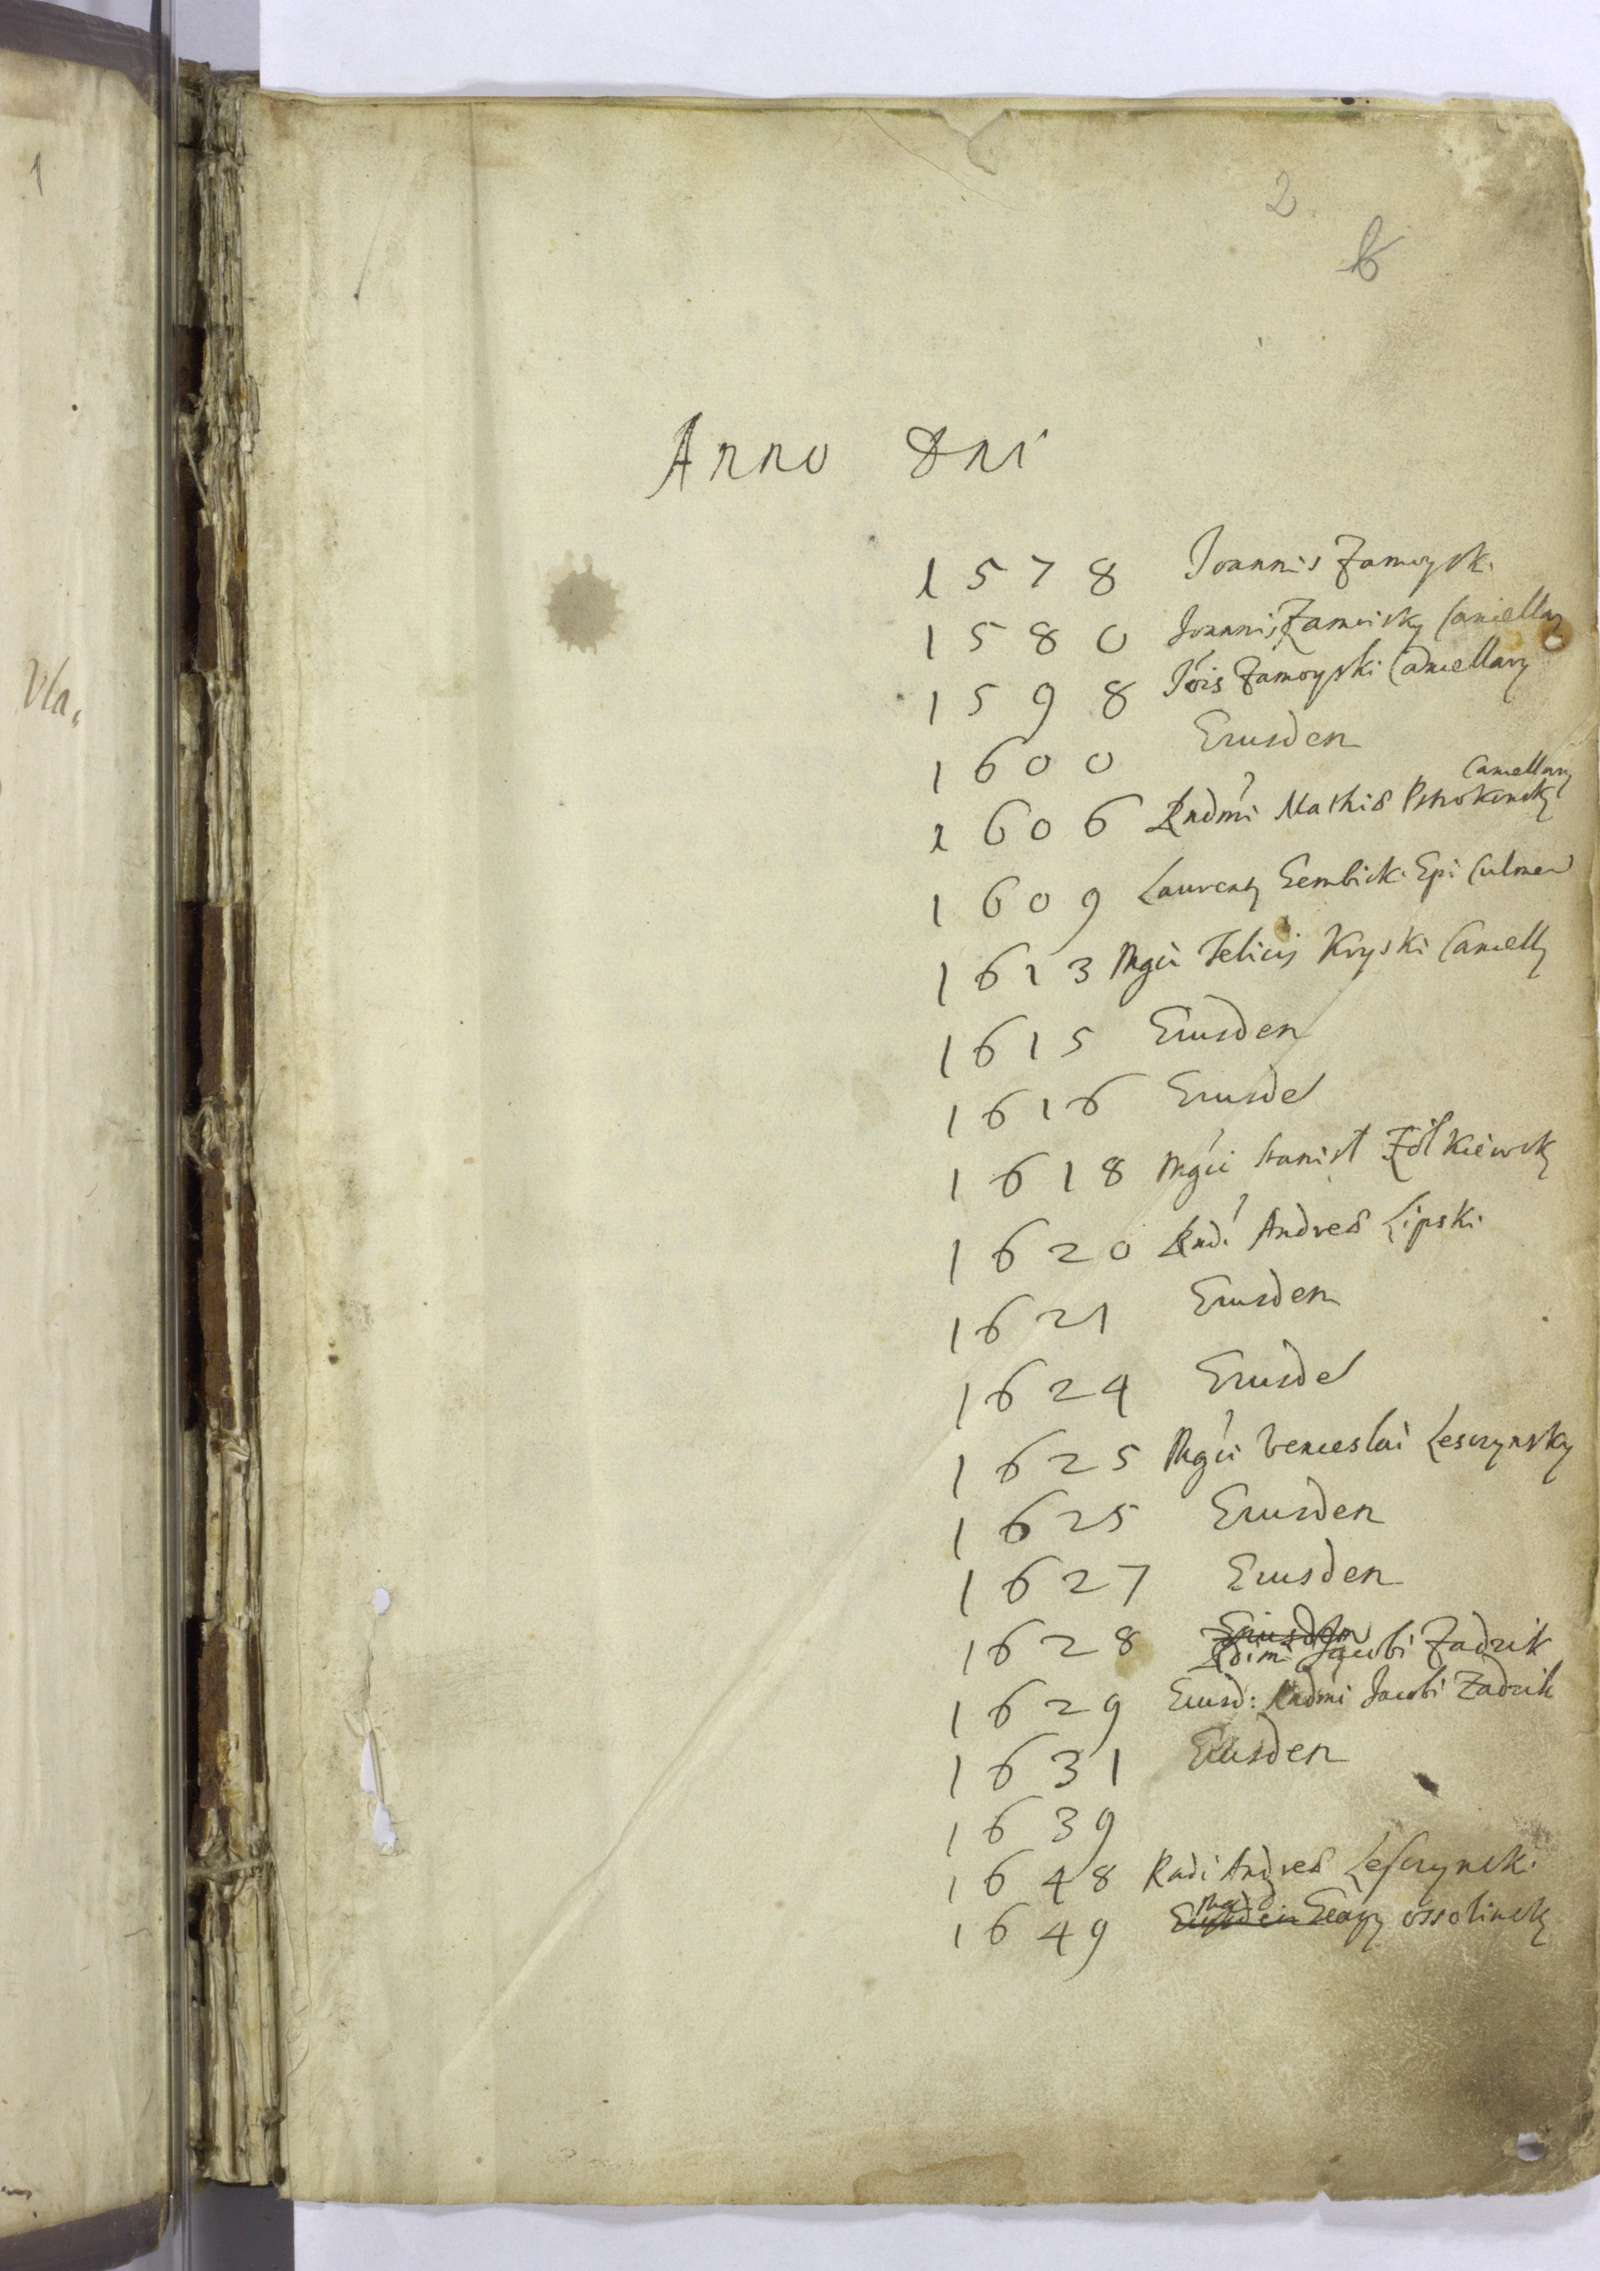 1
Vla,
2
b
Anno Dni
1578 Joannis Zamoysk.
1580 Joannis Zamoisky Cancellary
1598 Jois Zamoyski Cancellary
1600 Eiusdem
Cancellary
1606 Rndmi Mathiæ Pstrokonsky
1609 Laurenty Gembick. Epi Culmen
1613 Mgci Felicis Kryski Cancelly
1615 Eiusdem
1616 Eiusde
1618 Mgci Stanisl Zolkiewsky
1620 Rndi Andreæ Lipski
1621 Eiusdem
1624 Eiusde
1625 Mgci Venceslai Lesczynsky
1625 Eiusdem
1627 Eiusdem
Eiusdem
1628 Rdimi Jacobi Zadzik
1629 Eiusd: Rndmi Jacobi Zadzik
1631 Eiusdem
1639
1648 Rndi Andreæ Lesczynski
1649 Eiusdem Georgy Ossolinsky